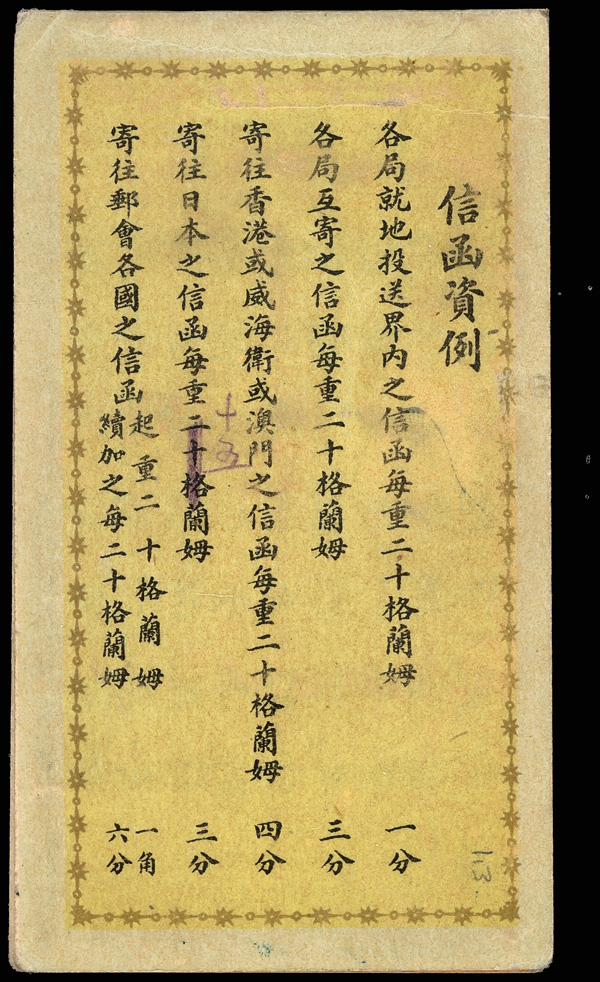 信函資例
各局就地投送界內之信函每重二十格蘭姆 一分
各局互寄之信函每重二十格蘭姆 三分
寄往香港或威海衛或澳門之信函每重二十格蘭姆 四分
寄往日本之信函每重二十格蘭姆 三分
十五
寄往郵會各國之信函
起重二十格蘭姆 一角
續加之每二十格蘭姆 六分